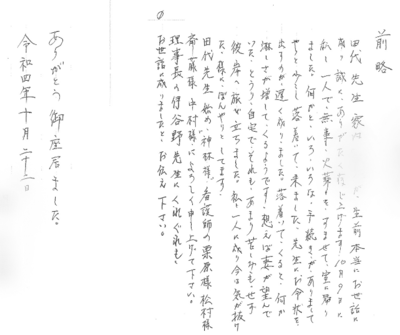 前略
田代先生 家内 生前本当にお世話に
成り誠にありがたく存じ上げます。10月9日に
私し一人で、無事、火葬をすませて、室に帰り
ました。何かと、いろいろな手続きがありまして
やっと少し落着いて来ました。先生にお令状を
出すのが遅く成りました。落着いてくると、何か
淋しさが増してくるようです。想えば妻が望んで
いた、とうり、自宅でそれもあまり苦しみもせず
彼岸へ旅立ちました。私し一人に成り今は気が抜け
た、様にぼんやりとしてます。
田代先生始め、神林様、看護師の栗原様松村様
斎藤様、中村様によろしく申し上げて下さい。
理事長の伊谷野先生にくれぐれも
お世話に成りましたと、お伝え下さい。
ありがとう御座居ました。
令和四年十月二十二日